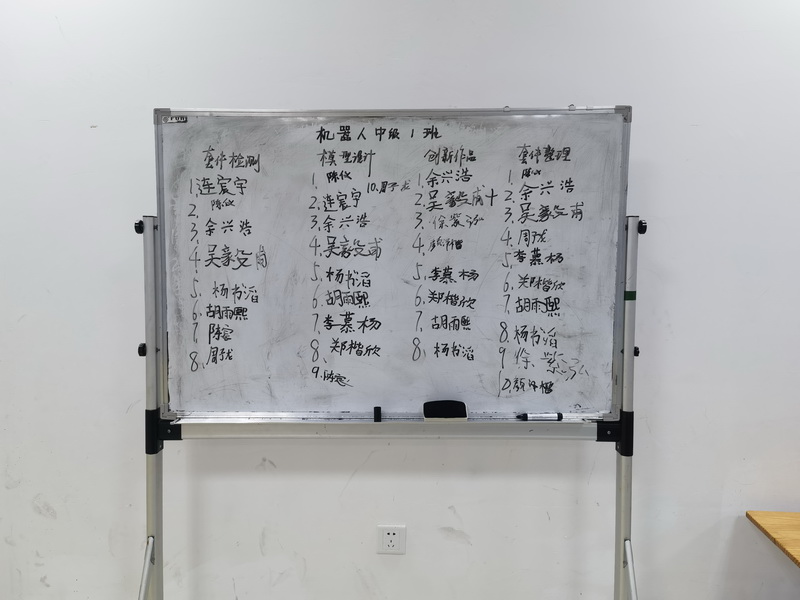 机器人中级1班
套件检测
1.连宸宇
2.陈仪
3.余兴浩
4.吴毅
5.杨书滔
6.胡雨熙
7.陈
8.周
模型设计
1.陈仪
2.连宸宇
3.余兴浩
4.吴毅甫
5.杨书滔
6.胡雨熙
7.李慕杨
8.郑楷欣
9.
10.周子
创新作品
1.余兴浩
2.吴毅甫十
3.徐紫
4.
5.李慕杨
6.郑楷欣
7.胡雨熙
8.杨书滔
套件整理
1.陈仪
2.余兴浩
3.吴毅甫
4.周
5.李慕杨
6.郑楷欣
7.胡雨熙
8.杨书滔
9徐紫
10.